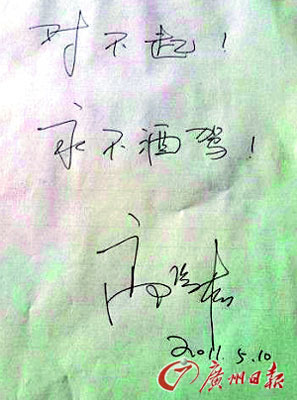 对不起!
永不酒驾!
高晓松
2011.5.10
广州日报